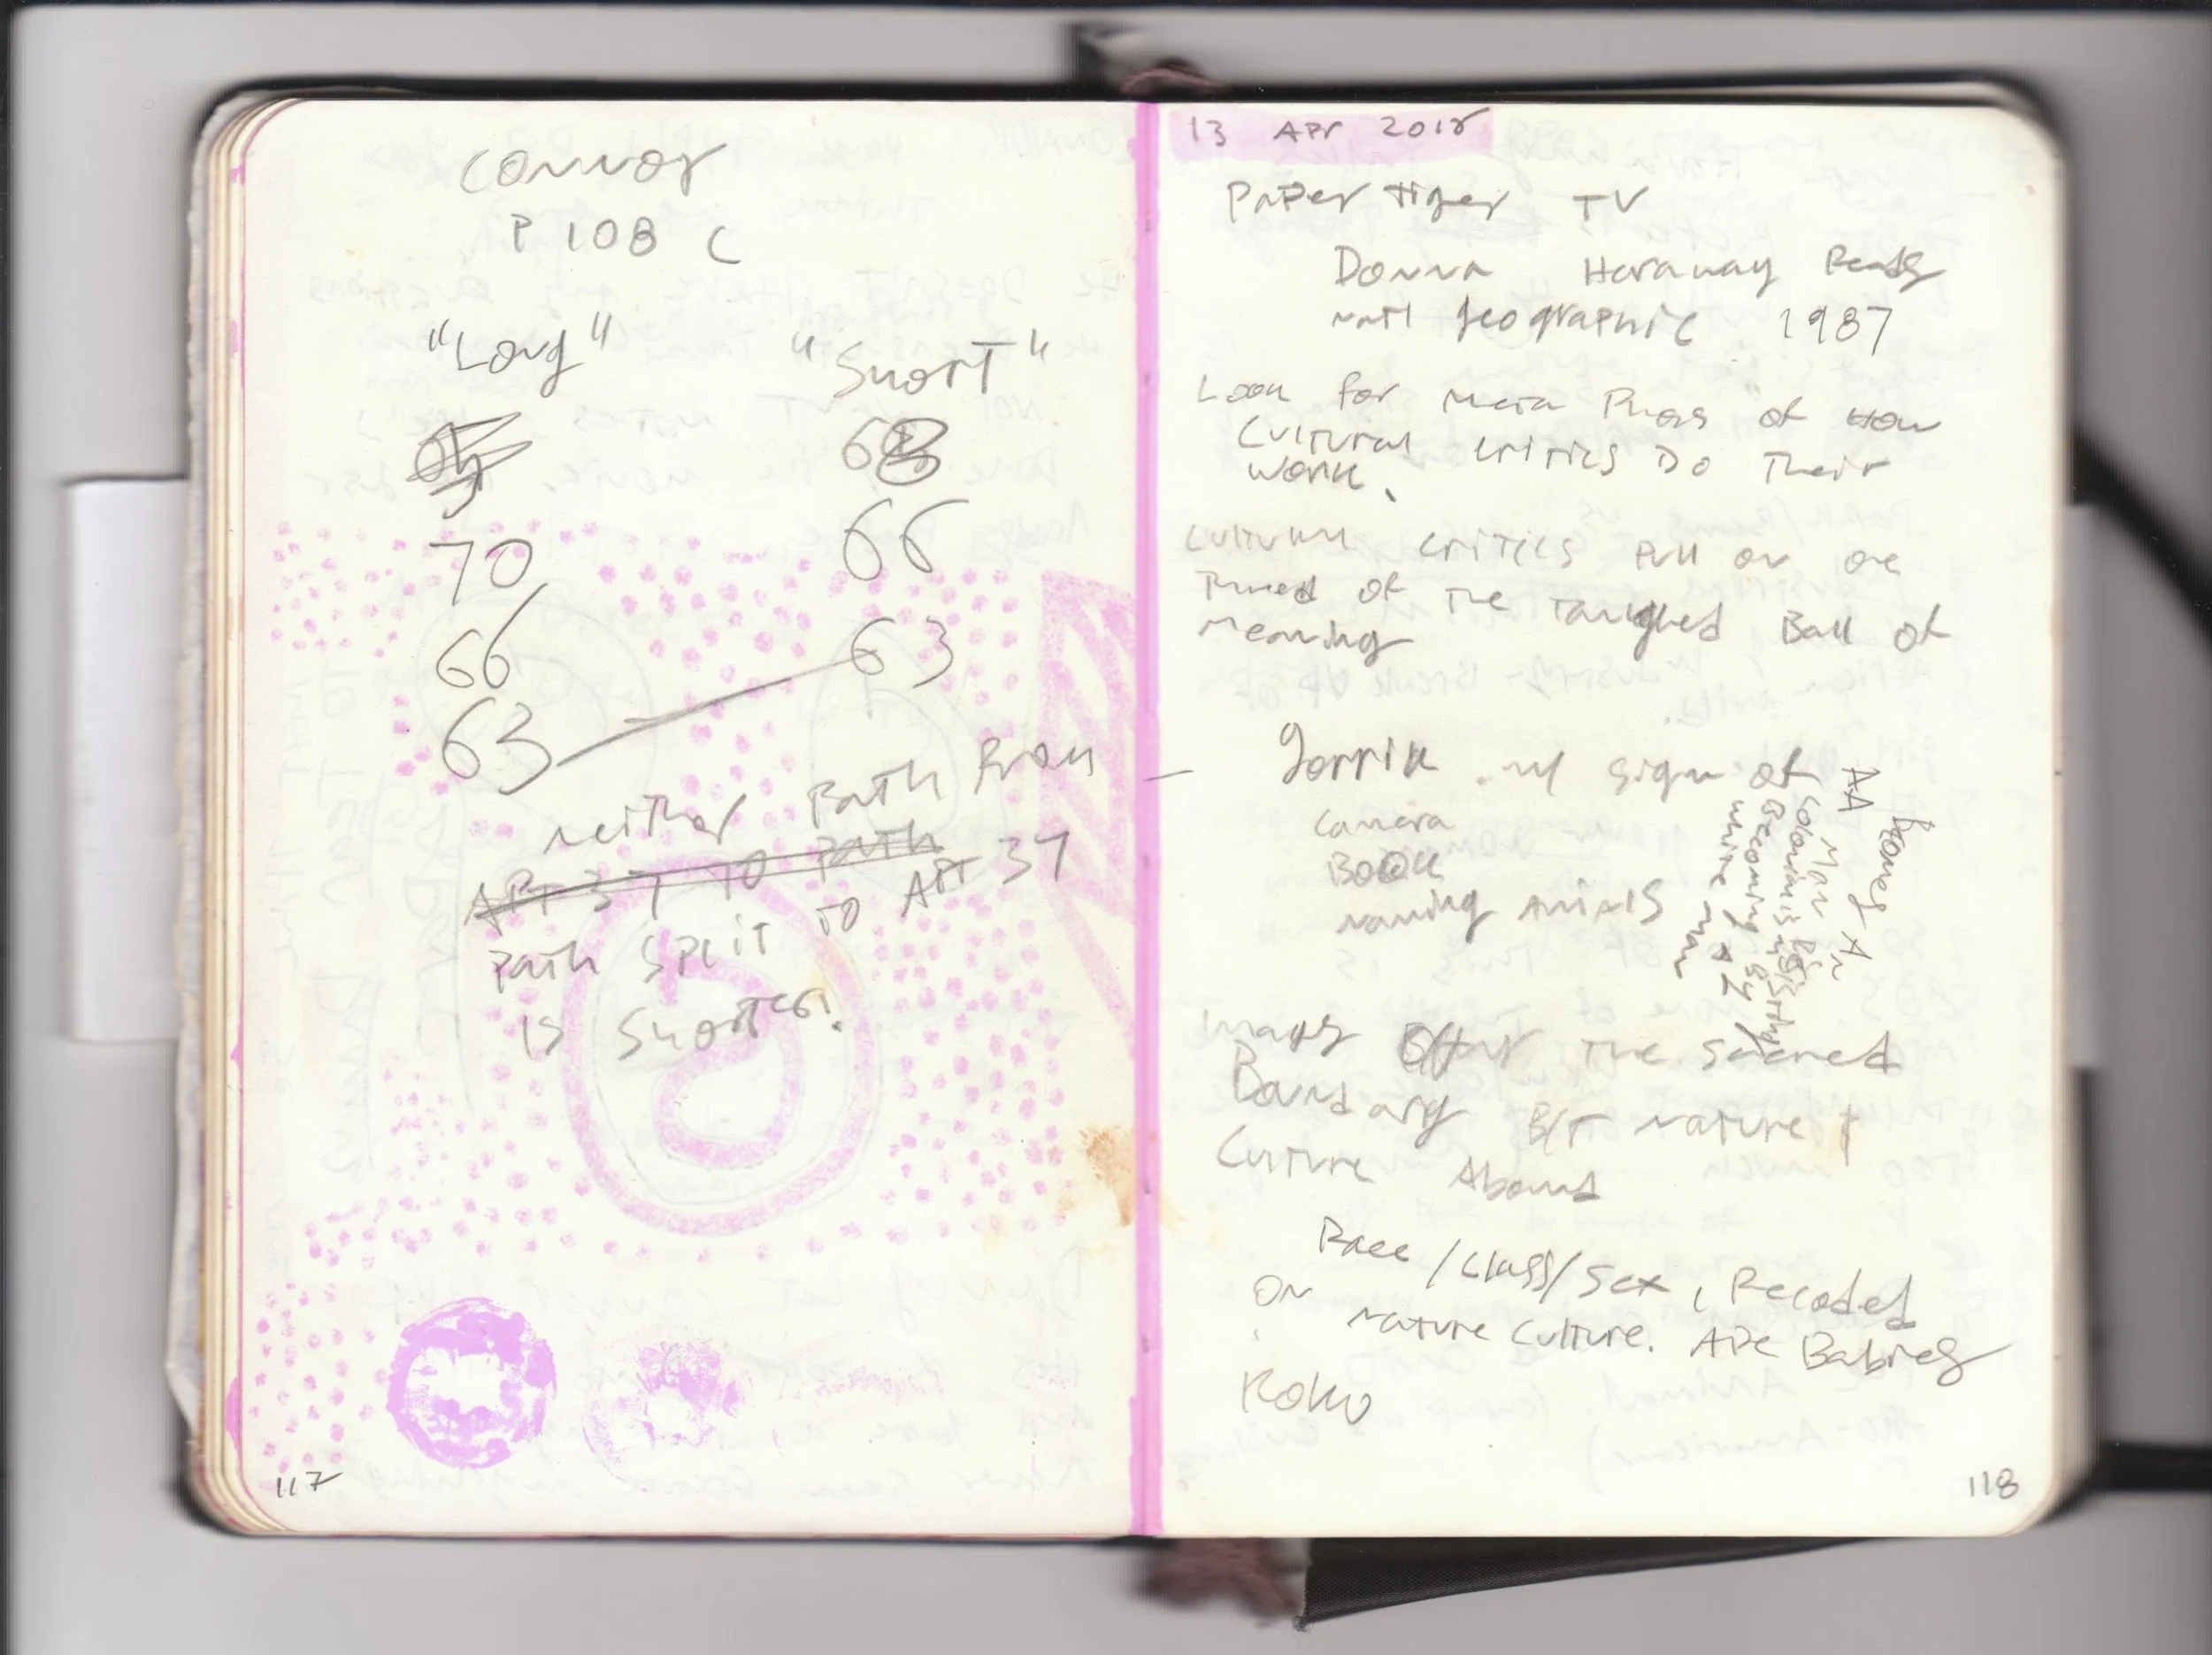 Connor
P 108 C
"Long" "Short"
68
70 66
66 63
63
neither path from
APT 37 TO PATH
path split to APT 37
is shorter!
117
13 Apr 2018
Paper tiger TV
Donna Haraway Reads
natl geographic 1987
Look for main Phases of How
Cultural critics Do Their
work.
Cultural critics pull on one
thread of the tanghed Ball of
meaning
gorrila w/ sign of
camera
Book
naming animls
AA
Becomes An
Man
Colonim is
Becoming
white man
Images the sacred
Boundary B/T nature +
Culture Abound
Race/class/sex, Recoded
on nature culture. Ape Babies
Koko
118